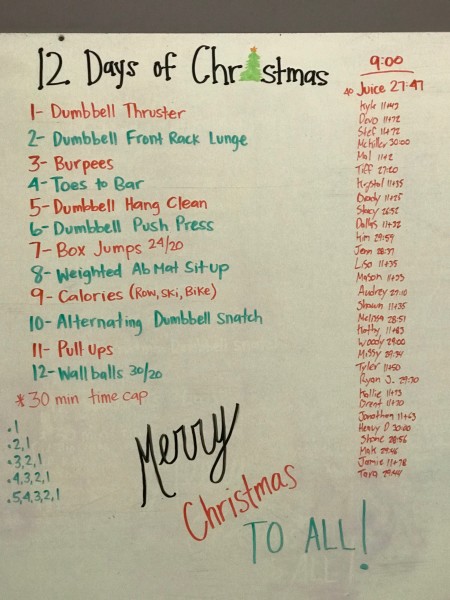 12 Days of Christmas
1- Dumbbell Thruster
2- Dumbbell Front Rack Lunge
3- Burpees
4- Toes to Bar
5- Dumbbell Hang Clean
6- Dumbbell Push Press
7- Box Jumps 24/20
8- Weighted Ab Mat Sit-up
9- Calories (Row, Ski, Bike)
10- Alternating Dumbbell Snatch
11- Pull ups
12- Wall balls 30/20
* 30 min time cap
.1
.2,1
.3,2,1
.4,3,2,1
.5,4,3,2,1
Merry
Christmas
TO ALL!
9:00
40 Juice 27:47
Kyle
Devo 11+72
Stef 11+72
McKiller 30:00
Mal 11+2
Tiff 27:20
Krystal 11+35
Brady 11+25
Stacy 26:52
Dallas 11+32
Kim 29:59
Jenn 28:37
Lisa 11+35
Mason 11+33
Audrey 27:10
Shawn 11+35
Melissa 28:51
Kathy 11+83
Woody 29:00
Missy 29:34
Tyler 11+50
Ryan S. 29:30
Kallie 11+73
Brent 11+70
Jonathan 11+63
Heavy D 30:00
Stone 28:56
Mak
Jamie 11+78
Tara 29:44